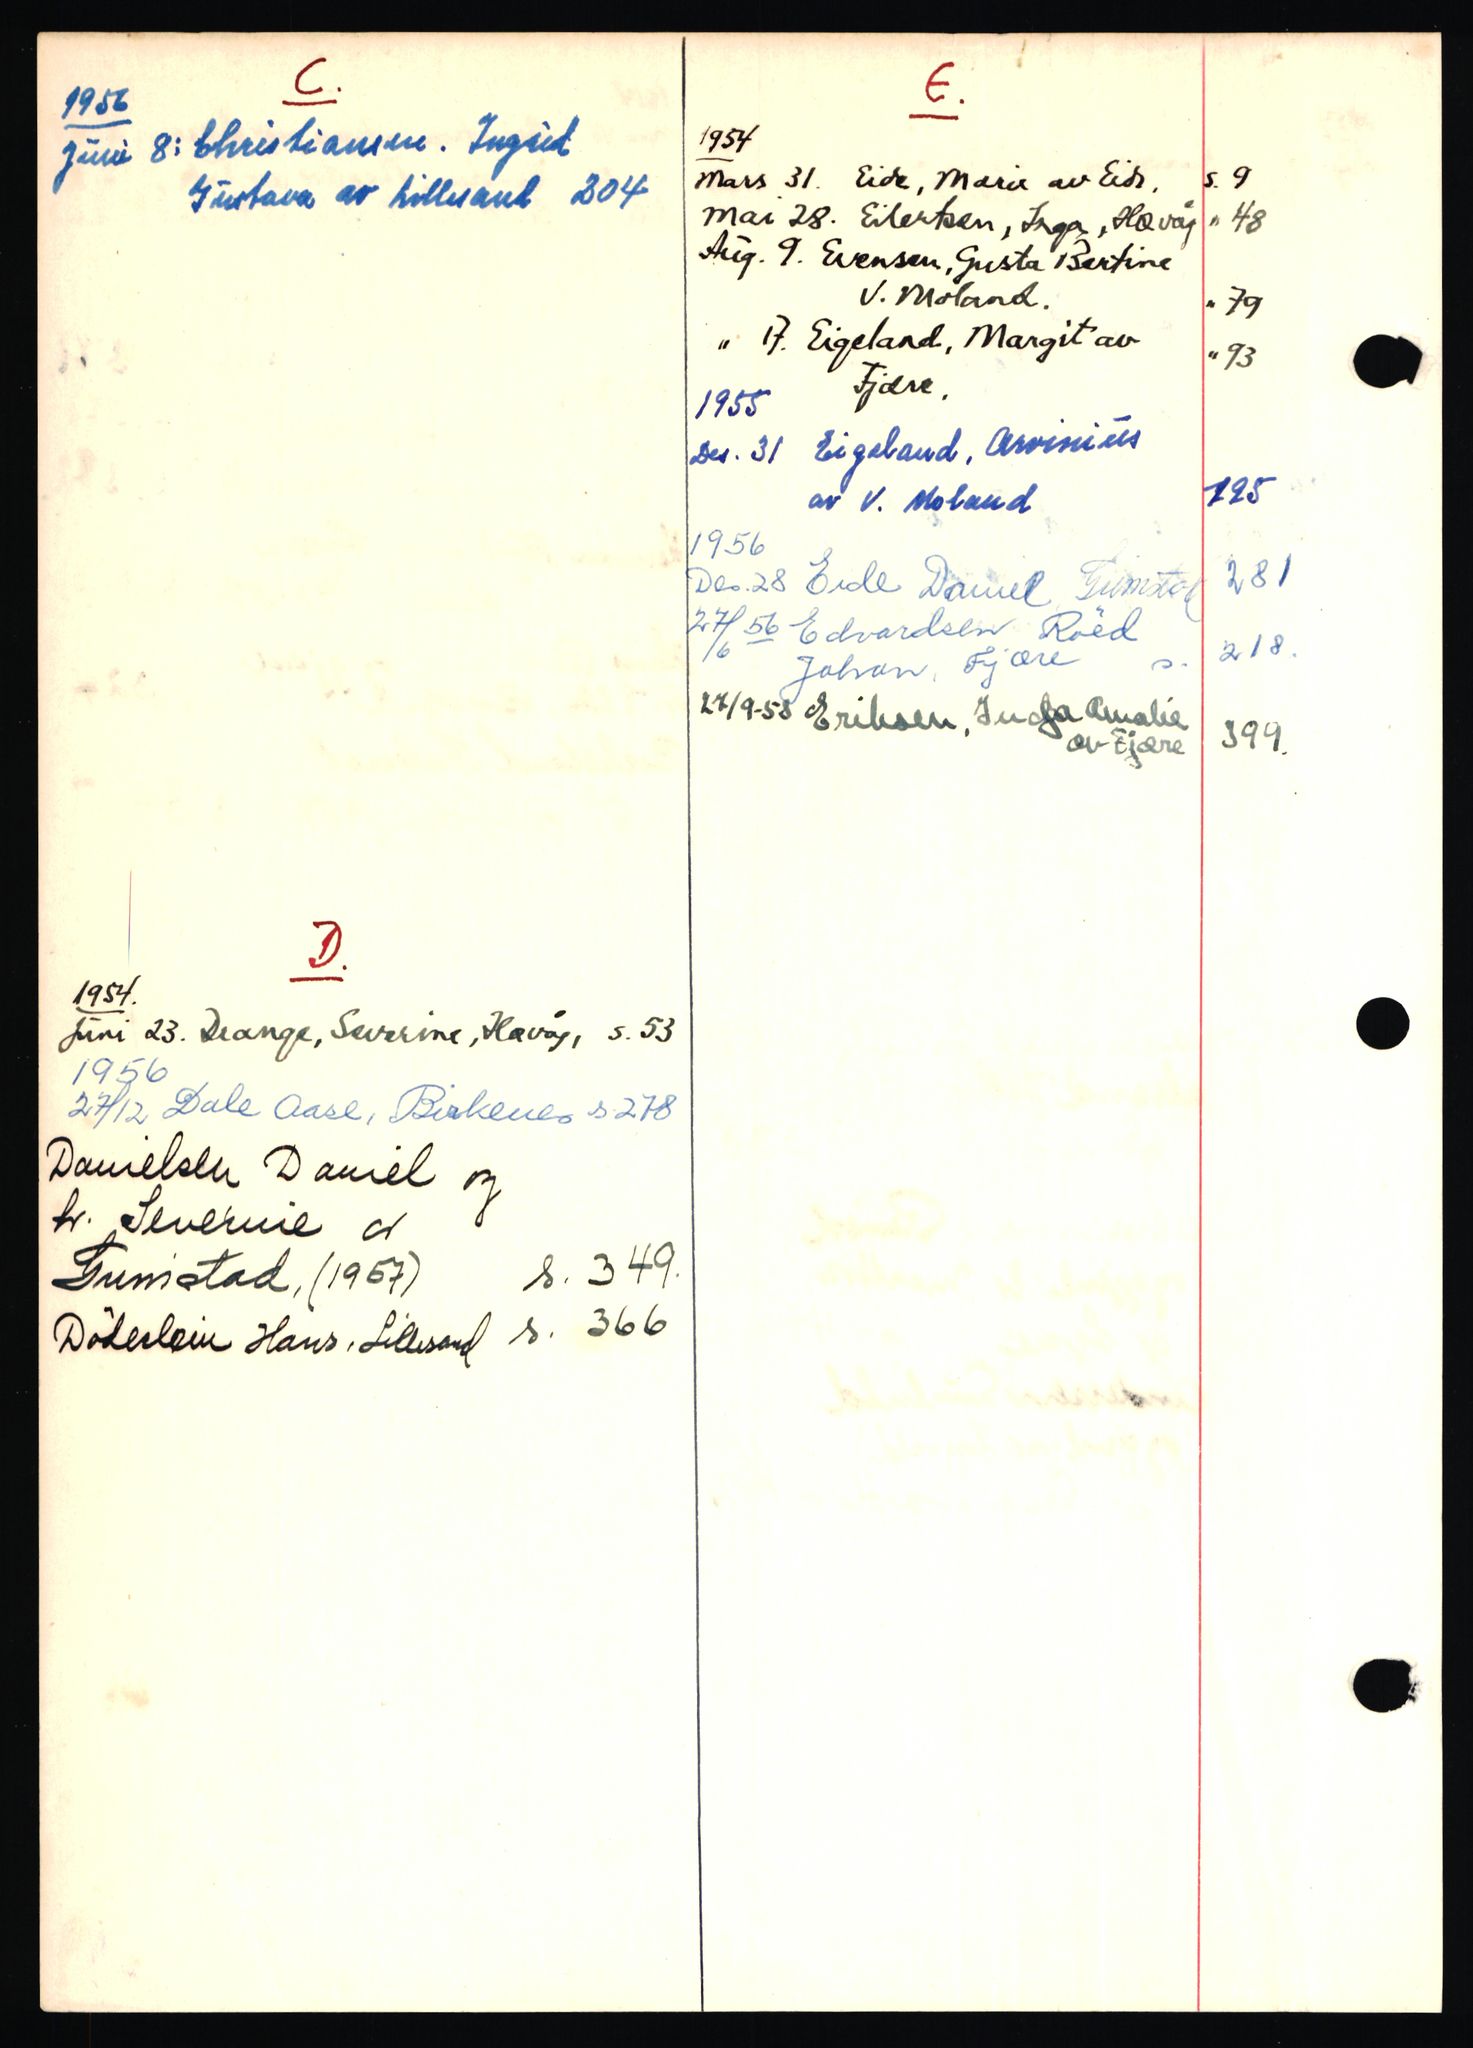 C.
1956
Juni 8: Christiansen. Ingrid
Gustava av Lillesand 204
D.
1954.
Juni 23. Drange, Severine, Høvåg, s. 53
1956
27/12 Dale Aase, Birkenes s. 278
Danielsen Daniel og
h. Severine a
Grimstad, (1957) s. 349.
Döderlein Hans, Lillesand s. 366
E.
1954
Mars 31. Eide, Marie av Eide, s. 9
Mai 28. Eilertsen, Inga, Høvåg " 48
Aug. 9. Evensen, Gusta Bertine
V. Moland. " 79
" 17. Eigeland, Margit av " 93
Fjære.
1955
Des. 31 Eigeland, Arvinius
av V. Moland 195
1956
Des. 28 Eide Daniel Grimstad 281
27/6 56 Edvardsen Röed
Johan, Fjære s. 218.
27/9-58 Eriksen, Inga Amalie
av Fjære 399.